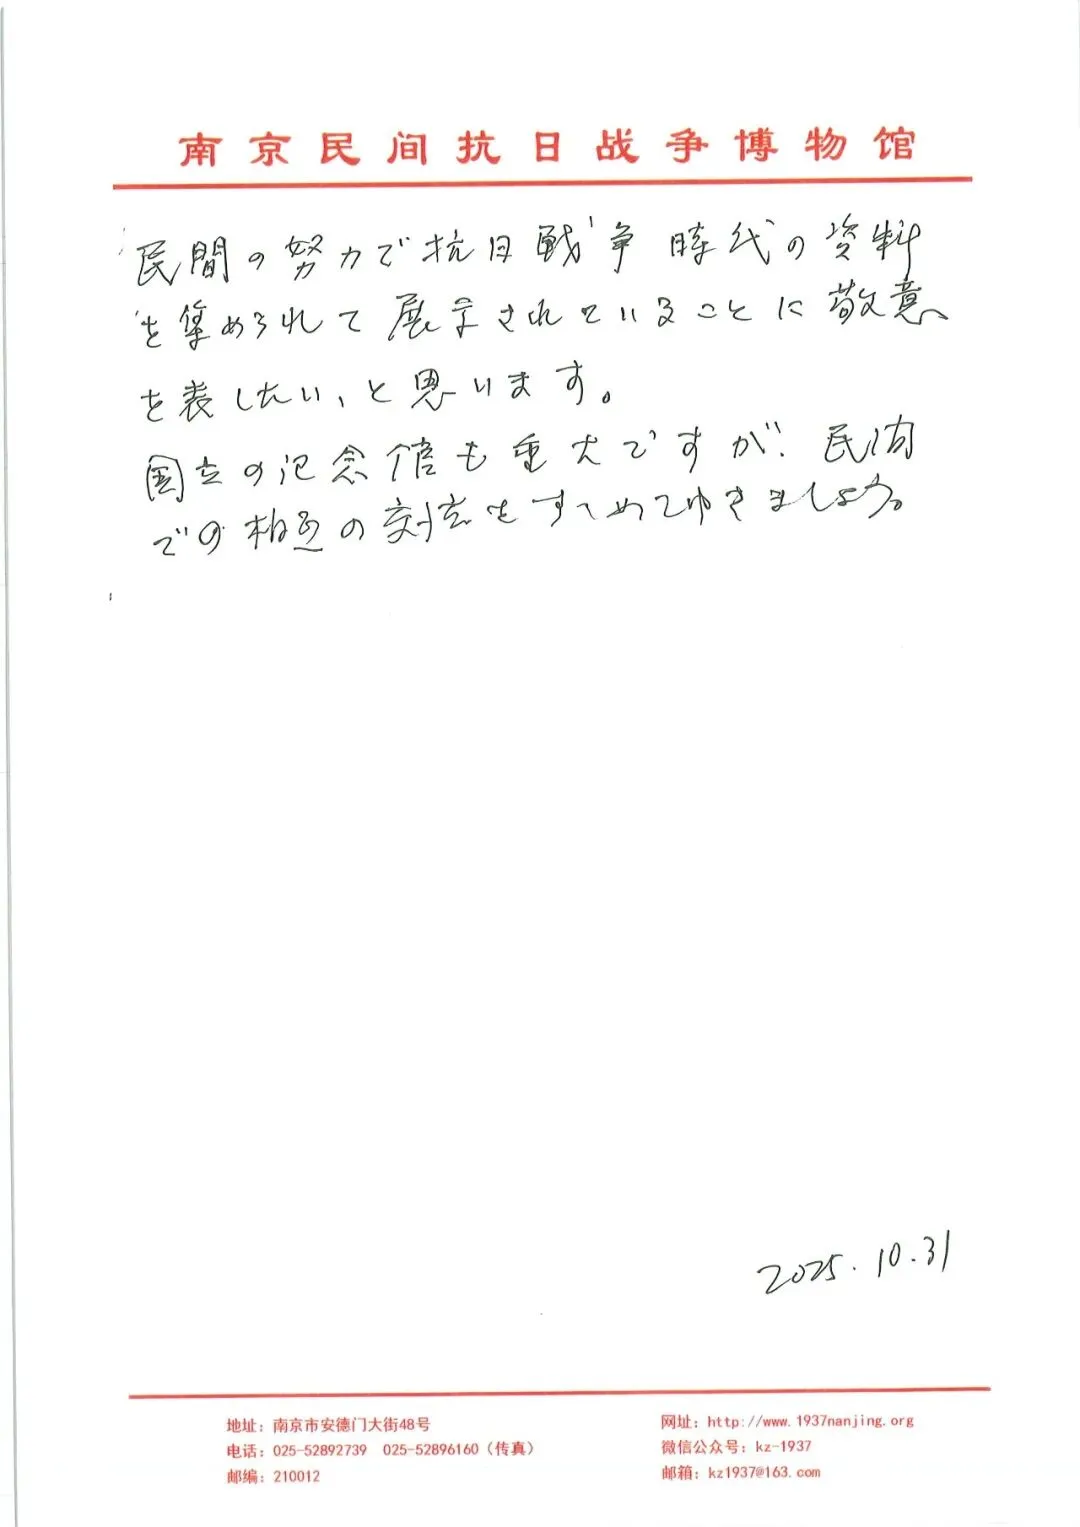 南京民间抗日战争博物馆
民間の努力で抗日戦争時代の資料
を集められて展示されていることに敬意
を表したい、と思います。
国立の記念館も重大ですが、民間
での相互の交流をすすめてゆきましょう。
2025.10.31
地址：南京市安德门大街48号
电话：025-52892739 025-52896160（传真）
邮编：210012
网址：http://www.1937nanjing.org
微信公众号：kz-1937
邮箱：kz1937@163.com